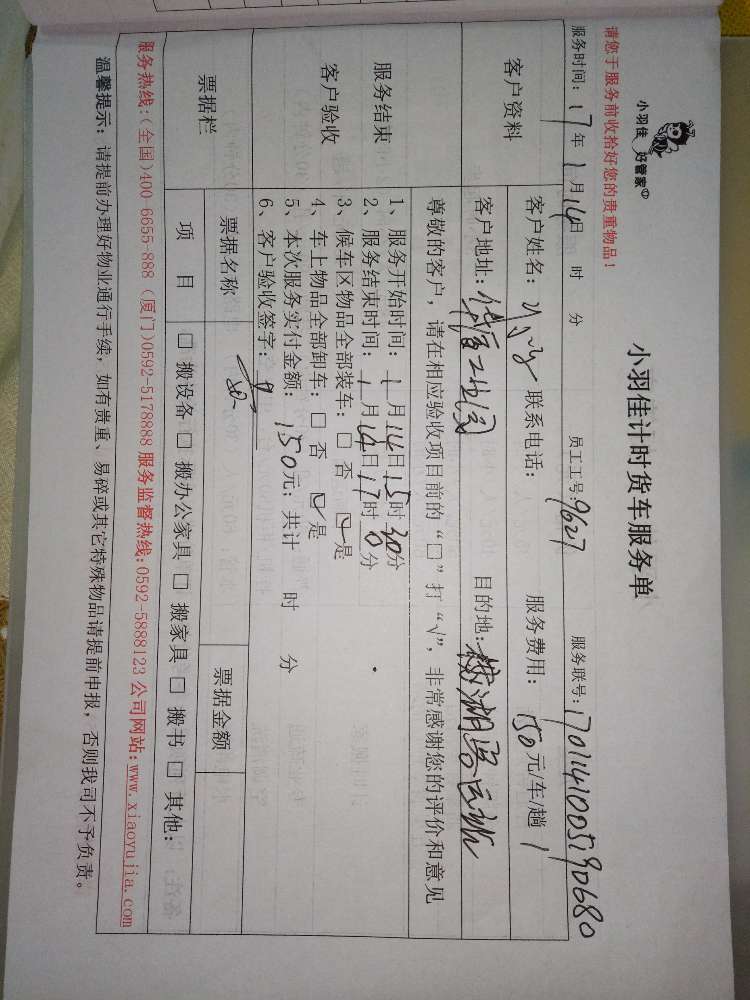 小羽佳 好管家
小羽佳计时货车服务单
请您于服务前收拾好您的贵重物品！
服务时间：17年1月14日 时 分 员工工号：9627 服务联号：1701141005190680
客户资料
客户姓名： 联系电话： 服务费用：150元/车/趟 1
客户地址： 目的地：
尊敬的客户，请在相应验收项目前的“□”打“√”，非常感谢您的评价和意见
服务结束
客户验收
1、服务开始时间：1月14日15时30分
2、服务结束时间：1月14日17时 分
3、候车区物品全部装车：□ 否 ☑ 是
4、车上物品全部卸车：□ 否 ☑ 是
5、本次服务实付金额：150元；共计 时 分
6、客户验收签字：
票据栏
票据名称 票据金额
项 目 □ 搬设备 □ 搬办公家具 □ 搬家具 □ 搬书 □ 其他：
服务热线：（全国）400 6655-888 （厦门）0592-5178888 服务监督热线：0592-5888123 公司网站：www.xiaoyujia.com
温馨提示：请提前办理好物业通行手续，如有贵重、易碎或其它特殊物品请提前申报，否则我司不予负责。